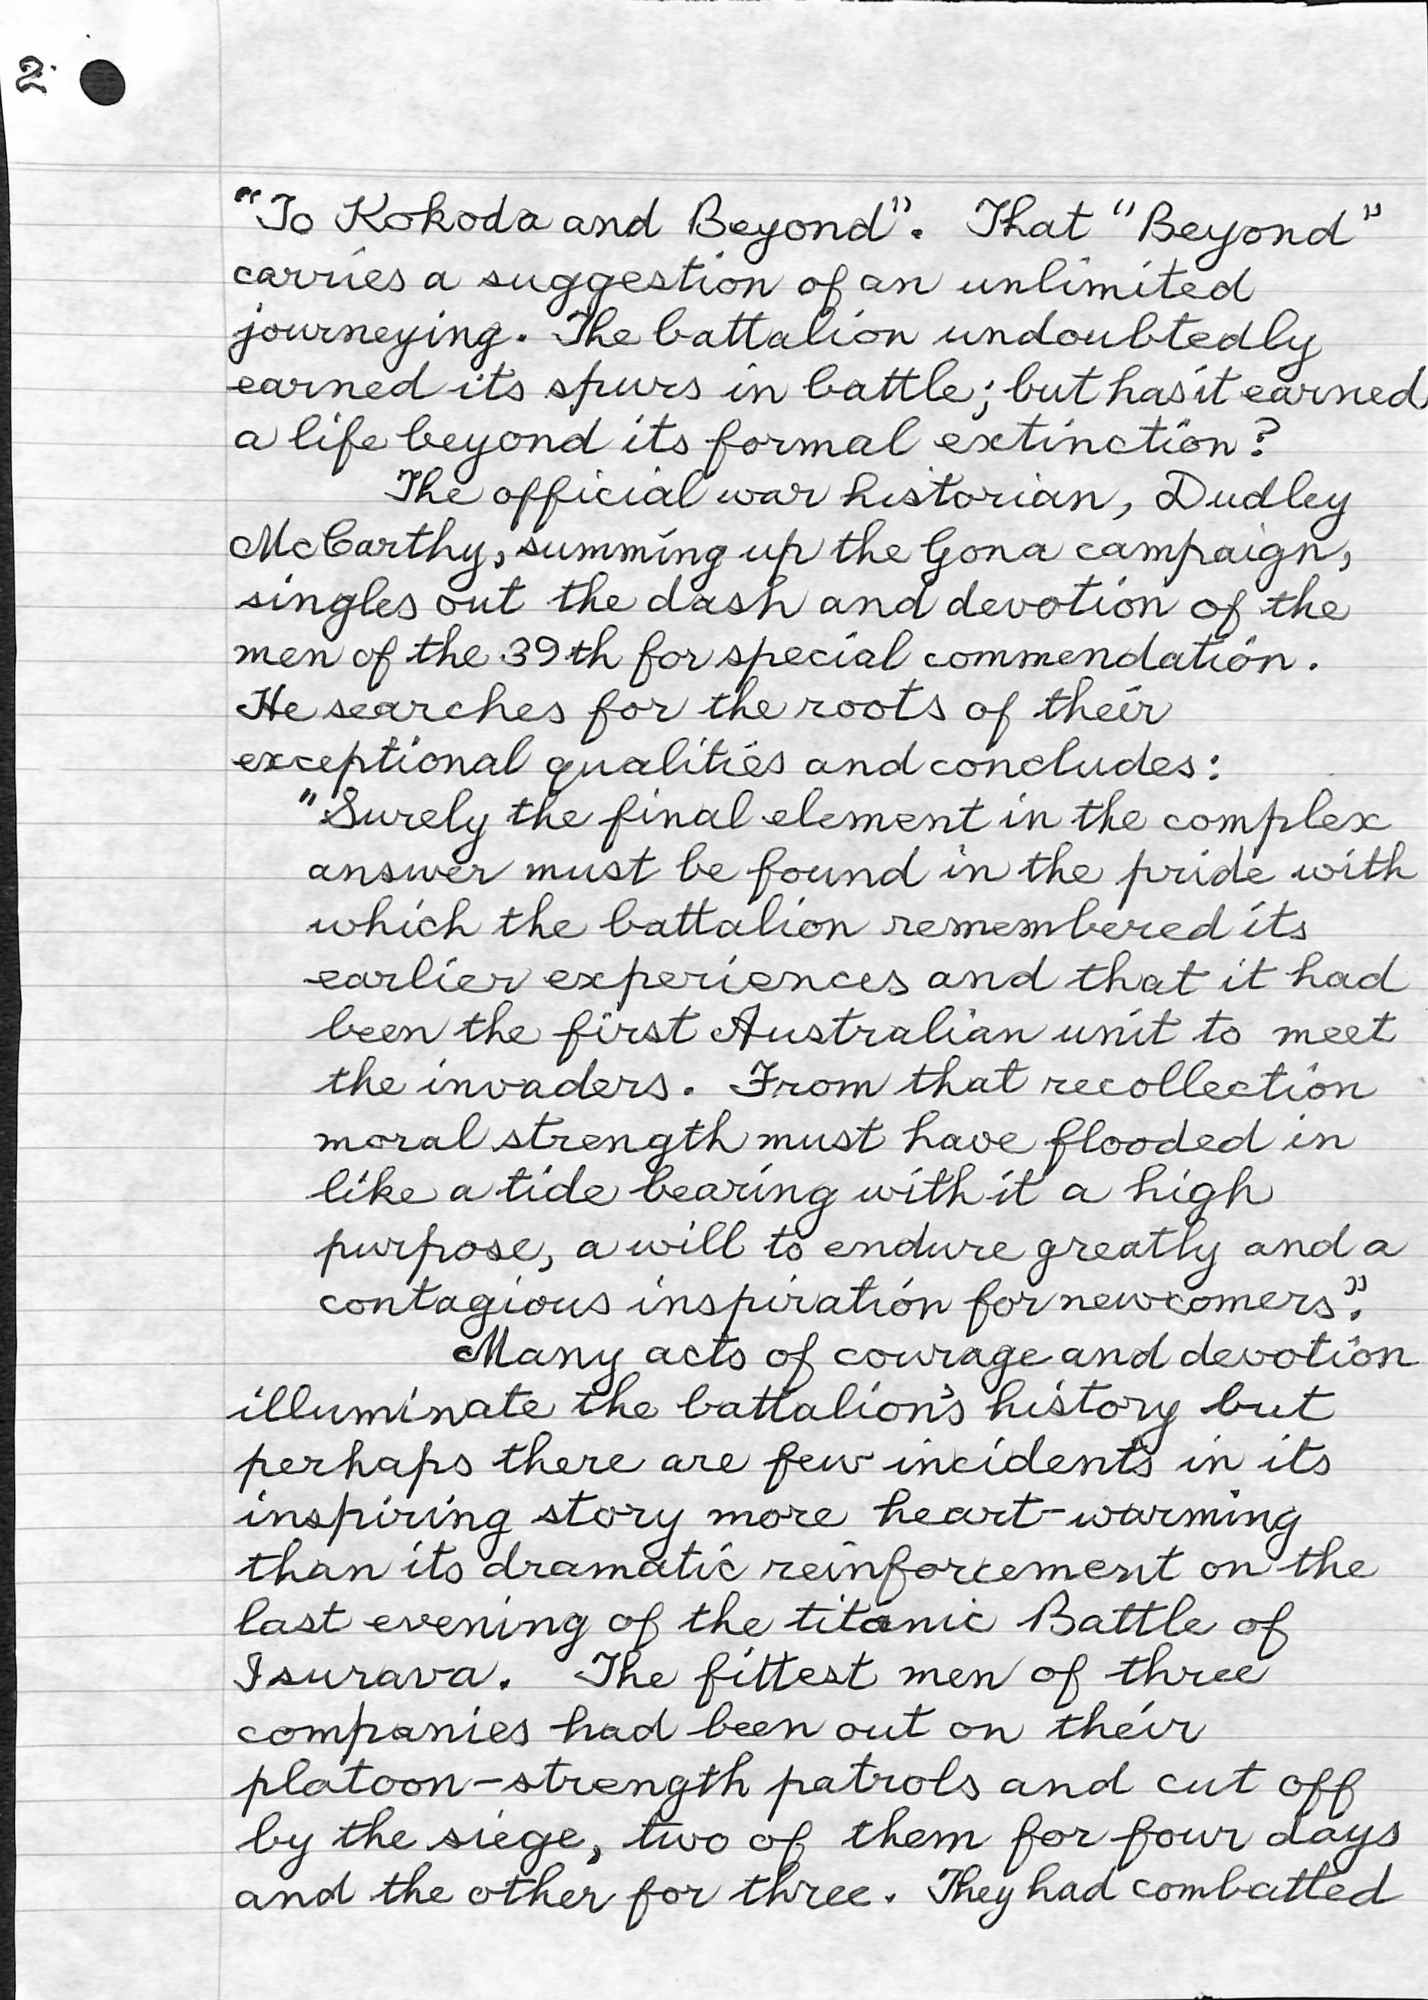 2.
"To Kokoda and Beyond". That "Beyond"
carries a suggestion of an unlimited
journeying. The battalion undoubtedly
earned its spurs in battle; but has it earned
a life beyond its formal extinction?
The official war historian, Dudley
McCarthy, summing up the Gona campaign,
singles out the dash and devotion of the
men of the 39th for special commendation.
He searches for the roots of their
exceptional qualities and concludes:
"Surely the final element in the complex
answer must be found in the pride with
which the battalion remembered its
earlier experiences and that it had
been the first Australian unit to meet
the invaders. From that recollection
moral strength must have flooded in
like a tide bearing with it a high
purpose, a will to endure greatly and a
contagious inspiration for newcomers".
Many acts of courage and devotion
illuminate the battalion's history but
perhaps there are few incidents in its
inspiring story more heart-warming
than its dramatic reinforcement on the
last evening of the titanic Battle of
Isurava. The fittest men of three
companies had been out on their
platoon-strength patrols and cut off
by the siege, two of them for four days
and the other for three. They had combatted